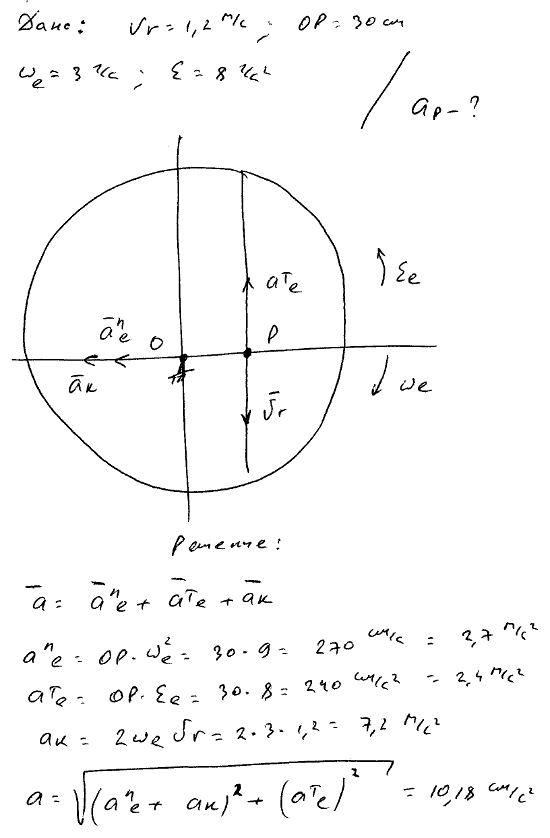 Дано: υr = 1,2 м/с ; OP = 30 см
ωe = 3 1/с ; ε = 8 1/с²
aP - ?
εe
aτe
āⁿe O P
āк ῡr ωe
Решение:
ā = āⁿe + āτe + āк
aⁿe = OP · ωe² = 30 · 9 = 270 см/с = 2,7 м/с²
aτe = OP · εe = 30 · 8 = 240 см/с² = 2,4 м/с²
aк = 2ωe υr = 2 · 3 · 1,2 = 7,2 м/с²
a = √(aⁿe + aк)² + (aτe)² = 10,18 см/с²